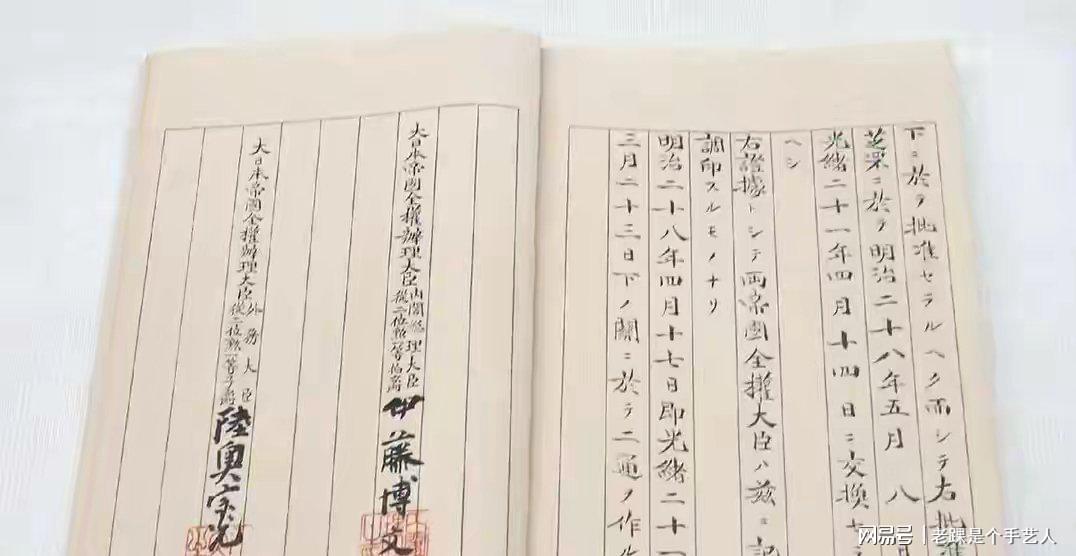 下ニ於テ批准セラルヘク而シテ右批
芝罘ニ於テ明治二十八年五月八
光緒二十一年四月十四日ニ交換
ヘシ
右證據トシテ兩帝國全權大臣ハ茲ニ記
調印スルモノナリ
明治二十八年四月十七日即光緒二十一
三月二十三日下ノ關ニ於テ二通ヲ作ル
大日本帝國全權辦理大臣內閣總理大臣從二位勲一等伯爵伊藤博文
大日本帝國全權辦理大臣外務大臣從二位勲一等子爵陸奧宗光
网易号|老踝是个手艺人